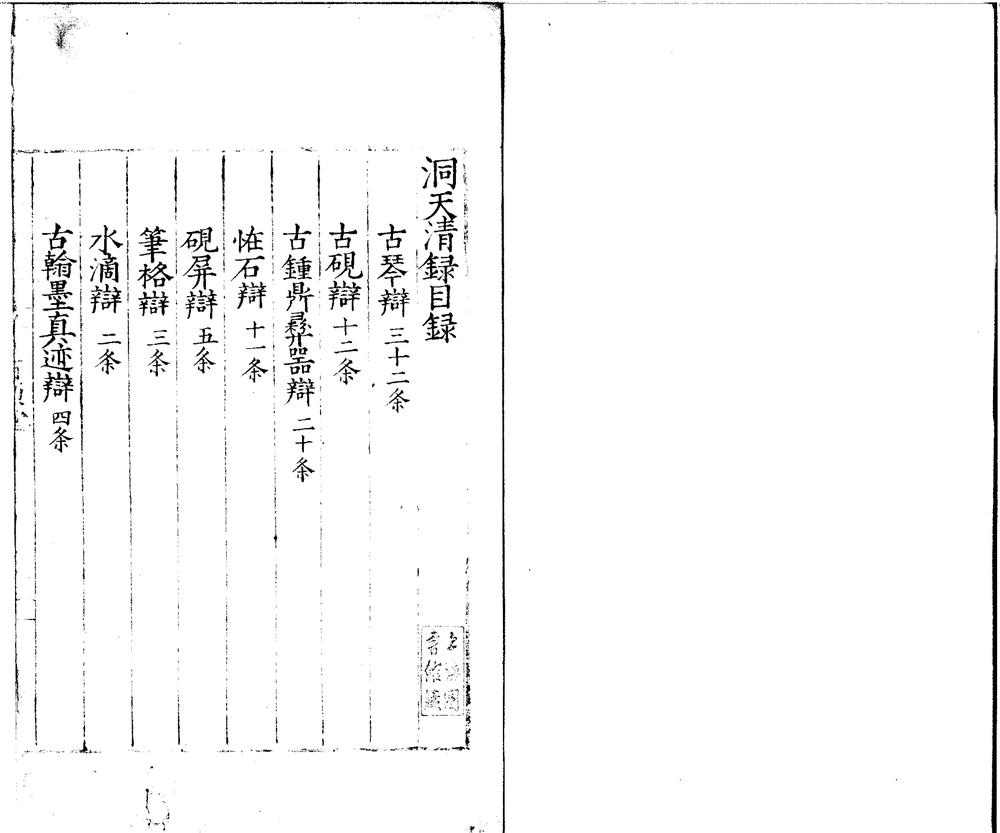 洞天清録目録
古琴辯 三十二条
古硯辯 十二条
古鍾鼎彛器辯 二十条
恠石辯 十一条
硯屏辯 五条
筆格辯 三条
水滴辯 二条
古翰墨真迹辯 四条